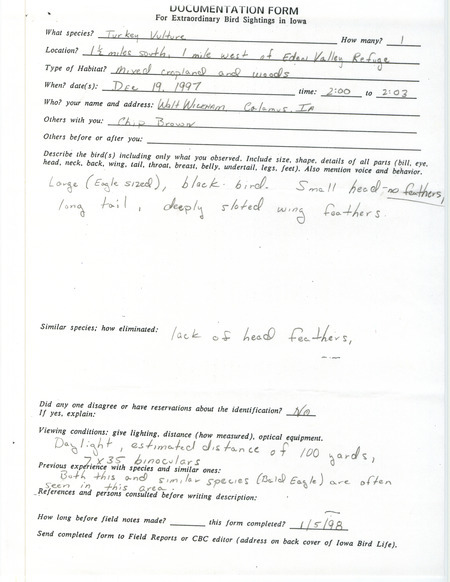 DOCUMENTATION FORM
For Extraordinary Bird Sightings in Iowa
What species? Turkey Vulture How many? 1
Location? 1 1/2 miles south, 1 mile west of Eden Valley Refuge
Type of Habitat? Mixed cropland and woods
When? date(s): Dec 19, 1997 time: 2:00 to 2:03
Who? your name and address: Walt Wickham, Calamus, IA
Others with you: Chip Brown
Others before or after you:
Describe the bird(s) including only what you observed. Include size, shape, details of all parts (bill, eye,
head, neck, back, wing, tail, throat, breast, belly, undertail, legs, feet). Also mention voice and behavior.
Large (Eagle sized), black bird. Small head-no feathers,
long tail, deeply sloted wing feathers.
Similar species; how eliminated: lack of head feathers,
Did any one disagree or have reservations about the identification? No
If yes, explain:
Viewing conditions: give lighting, distance (how measured), optical equipment.
Daylight, estimated distance of 100 yards,
7x35 binoculars
Previous experience with species and similar ones:
Both this and similar species (Bald Eagle) are often
seen in this area.
References and persons consulted before writing description:
How long before field notes made? this form completed? 1/5/98
Send completed form to Field Reports or CBC editor (address on back cover of Iowa Bird Life).